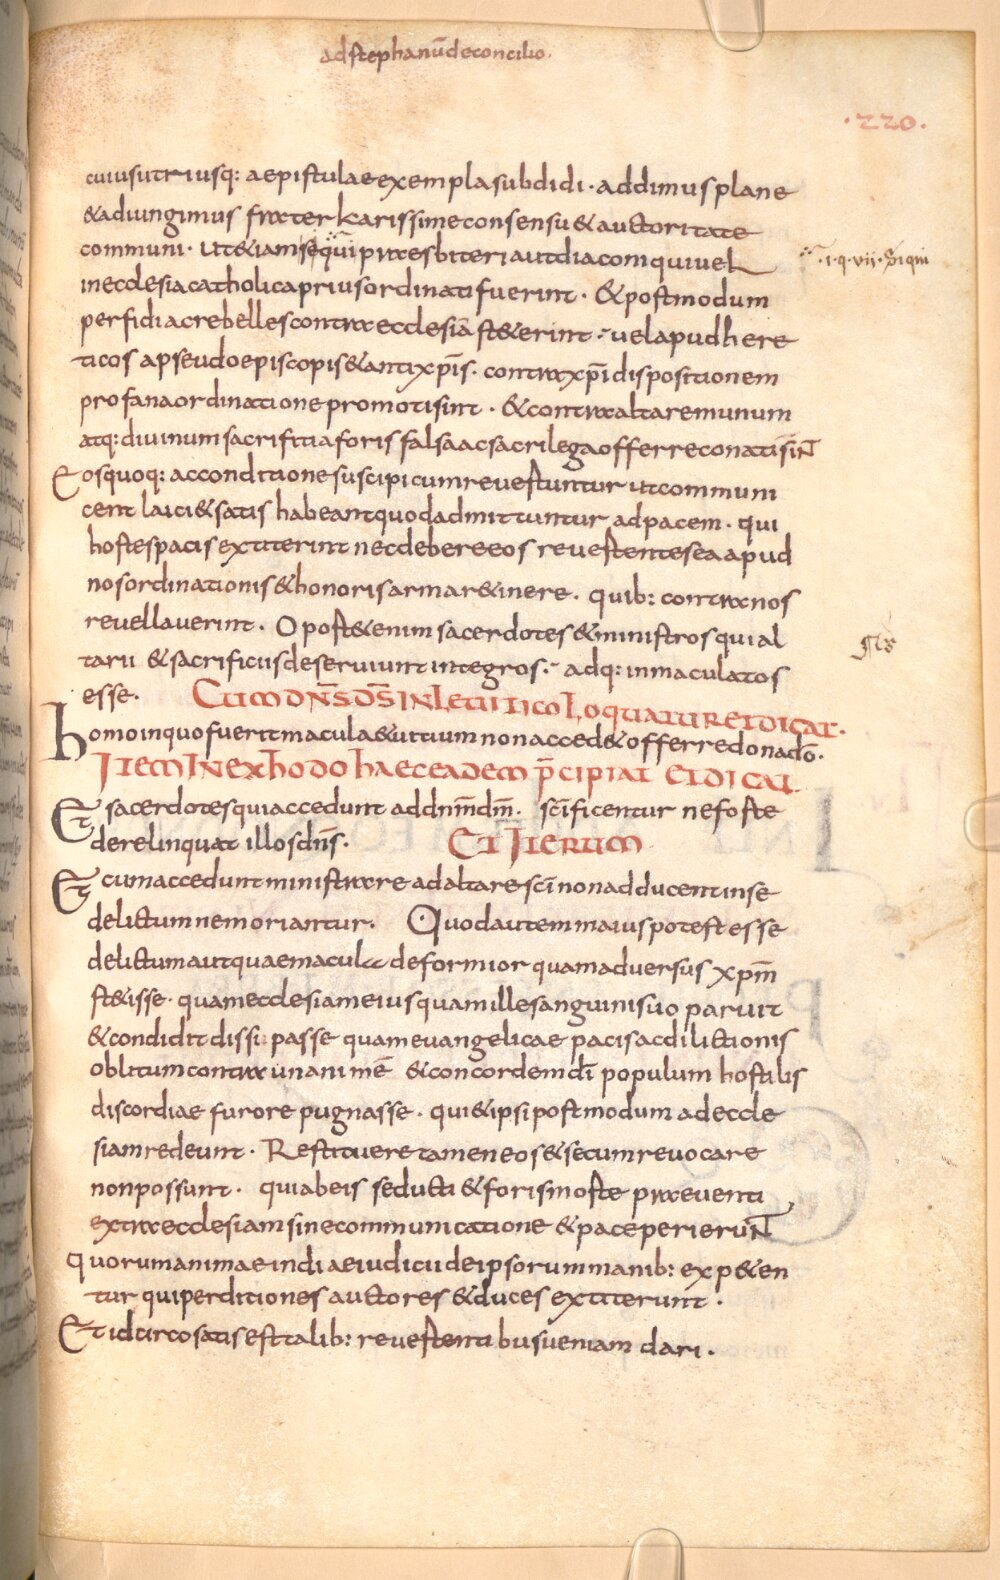 ad stephanū de concilio.
·220·
cuiusutriusq: aepistulae exempla subdidi· addimus plane
& adiungimus frater karissime consensu & auctoritate
communi· ut & iam sequi praesbiteri aut diaconi qui vel
·1·q·vii·Siqui
in ecclesia catholica prius ordinati fuerint· & postmodum
perfidi ac rebelles contra ecclesiā st&erint· vel apud here
ticos a pseudoepiscopis & antixp̄is· contra xp̄i dispositionem
profana ordinatione promoti sint· & contra altarem unum
atq: divinum sacrifitia foris falsa ac sacrilega offerre conati sint
Eos quoq: ac conditione suscipi cum revestuntur ut commum
cent laici & satis habeant quod admittuntur ad pacem· qui
hostes pacis extiterint nec debere eos revestentes ea apud
nos ordinationis & honoris arma r&inere· quib: contra nos
revellaverint· Opost& enim sacerdotes & ministros qui al
tarii & sacrificiis deserviunt integros· adq: inmaculatos
esse· Cum dn̄s ds̄ in levitico loquatur et dicat·
homo in quo fuerit macula & vitium non acced& offerre dona dō·
Item in exhodo haec eadem p̄cipiat et dicat·
Et sacerdotes qui accedunt ad dn̄m dm̄· sc̄ificentur ne foste
derelinquat illos dn̄s· Et iterum
Et cum accedunt ministrare ad altare sc̄i non adducent in se
delictum ne moriantur· Quod autem maius potest esse
delictum aut quae macula deformior quam adversus xp̄m
st&isse· quam ecclesiam eius quam ille sanguini suo paruit
& condidit dissipasse quam evangelicae pacis ac dilictionis
oblitum contra unanimē & concordem dī populum hostilis
discordiae furore pugnasse· qui & ipsi postmodum ad eccle
siam redeunt· Restituere tamen eos & secum revocare
non possunt· qui ab eis seducti & foris moste praeventi
extra ecclesiam sine communicatione & pace perierunt
Quorum animae in diae iudicii de ipsorum manib: exp&en
tur qui perditiones auctores & duces extiterunt·
Et idcirco satis est talib: revestentibus veniam dari·